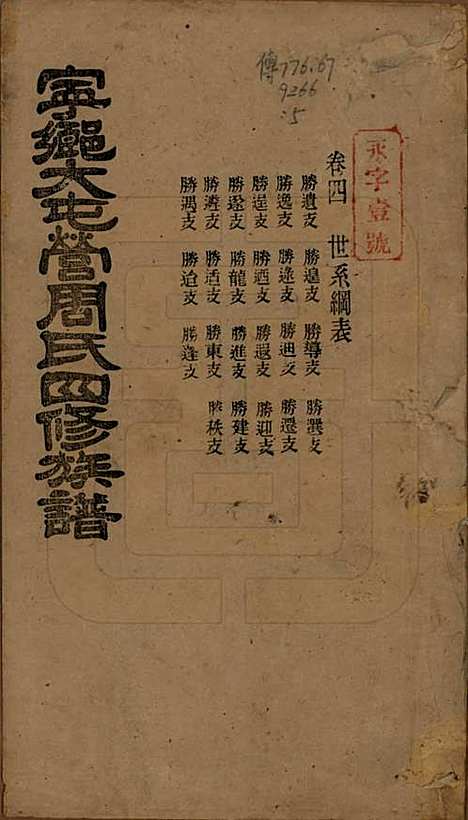 寧鄉大屯營周氏四修族譜
傳776.67
9266
:5
永字壹號
卷四　世系綱表
勝遺支　勝遑支　勝導支　勝選支
勝逸支　勝逄支　勝迪支　勝還支
勝逞支　勝迺支　勝遐支　勝迎支
勝遂支　勝龍支　勝進支　勝建支
勝遴支　勝适支　勝東支　勝秩支
勝遇支　勝迨支　勝逢支